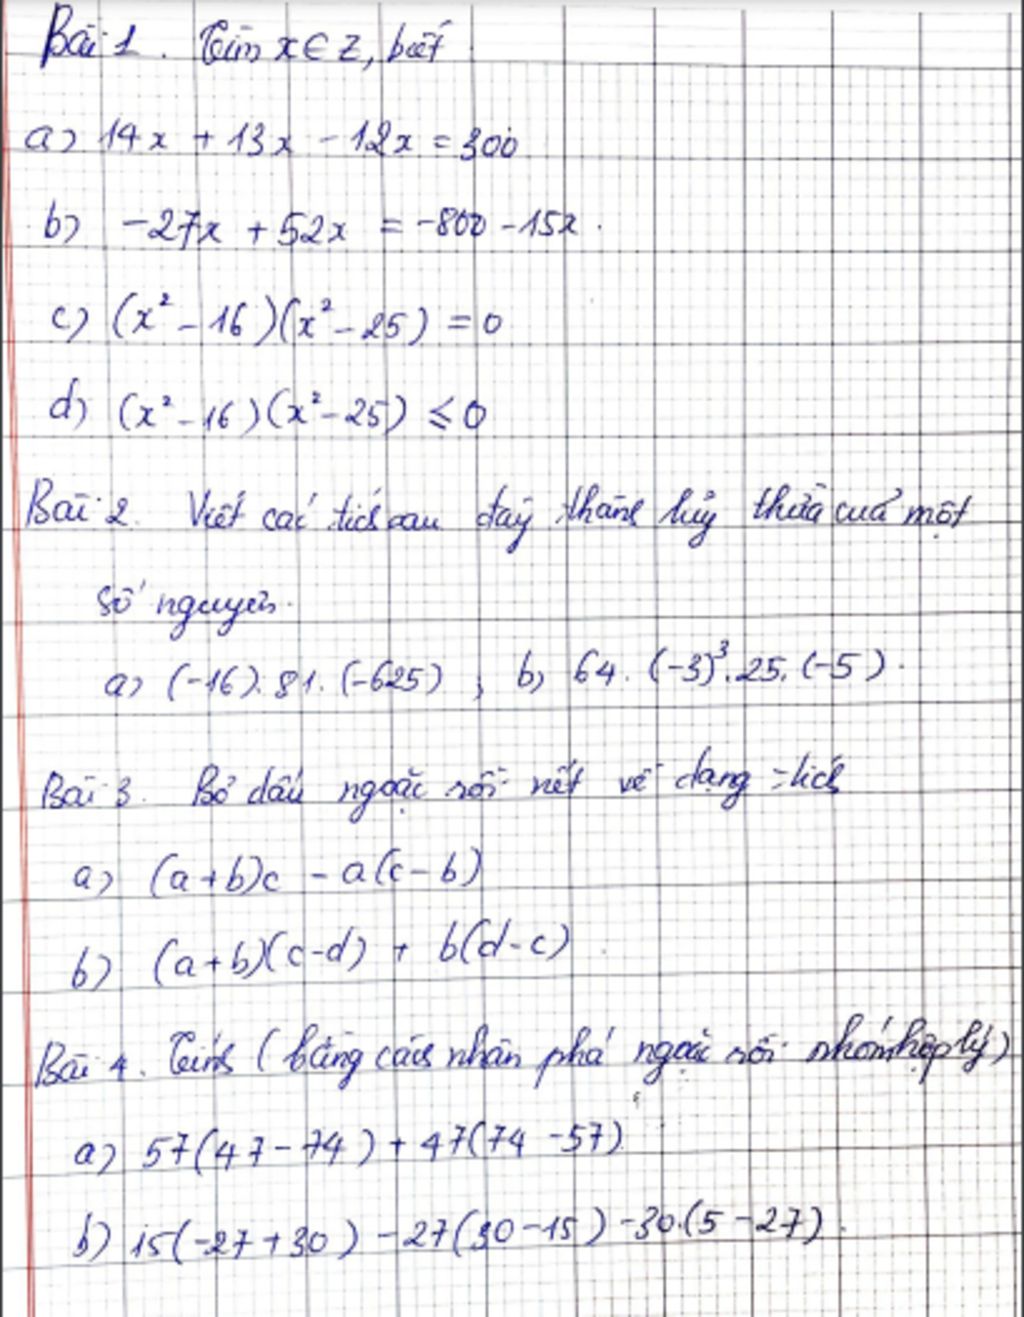 Bài 1. Tìm x ∈ Z, biết
a) 14x + 13x - 12x = 300
b) -27x + 52x = -800 - 15x.
c) (x² - 16)(x² - 25) = 0
d) (x² - 16)(x² - 25) ≤ 0
Bài 2. Viết các tích sau đây thành lũy thừa của một
số nguyên.
a) (-16).81.(-625) ; b) 64.(-3)³.25.(-5).
Bài 3. Bỏ dấu ngoặc rồi viết về dạng tích
a) (a+b)c - a(c-b)
b) (a+b)(c-d) + b(d-c).
Bài 4. Tính (bằng cách nhân phá ngoặc rồi nhóm hợp lý)
a) 57(47-74) + 47(74-57)
b) 15(-27+30) - 27(30-15) - 30.(5-27).